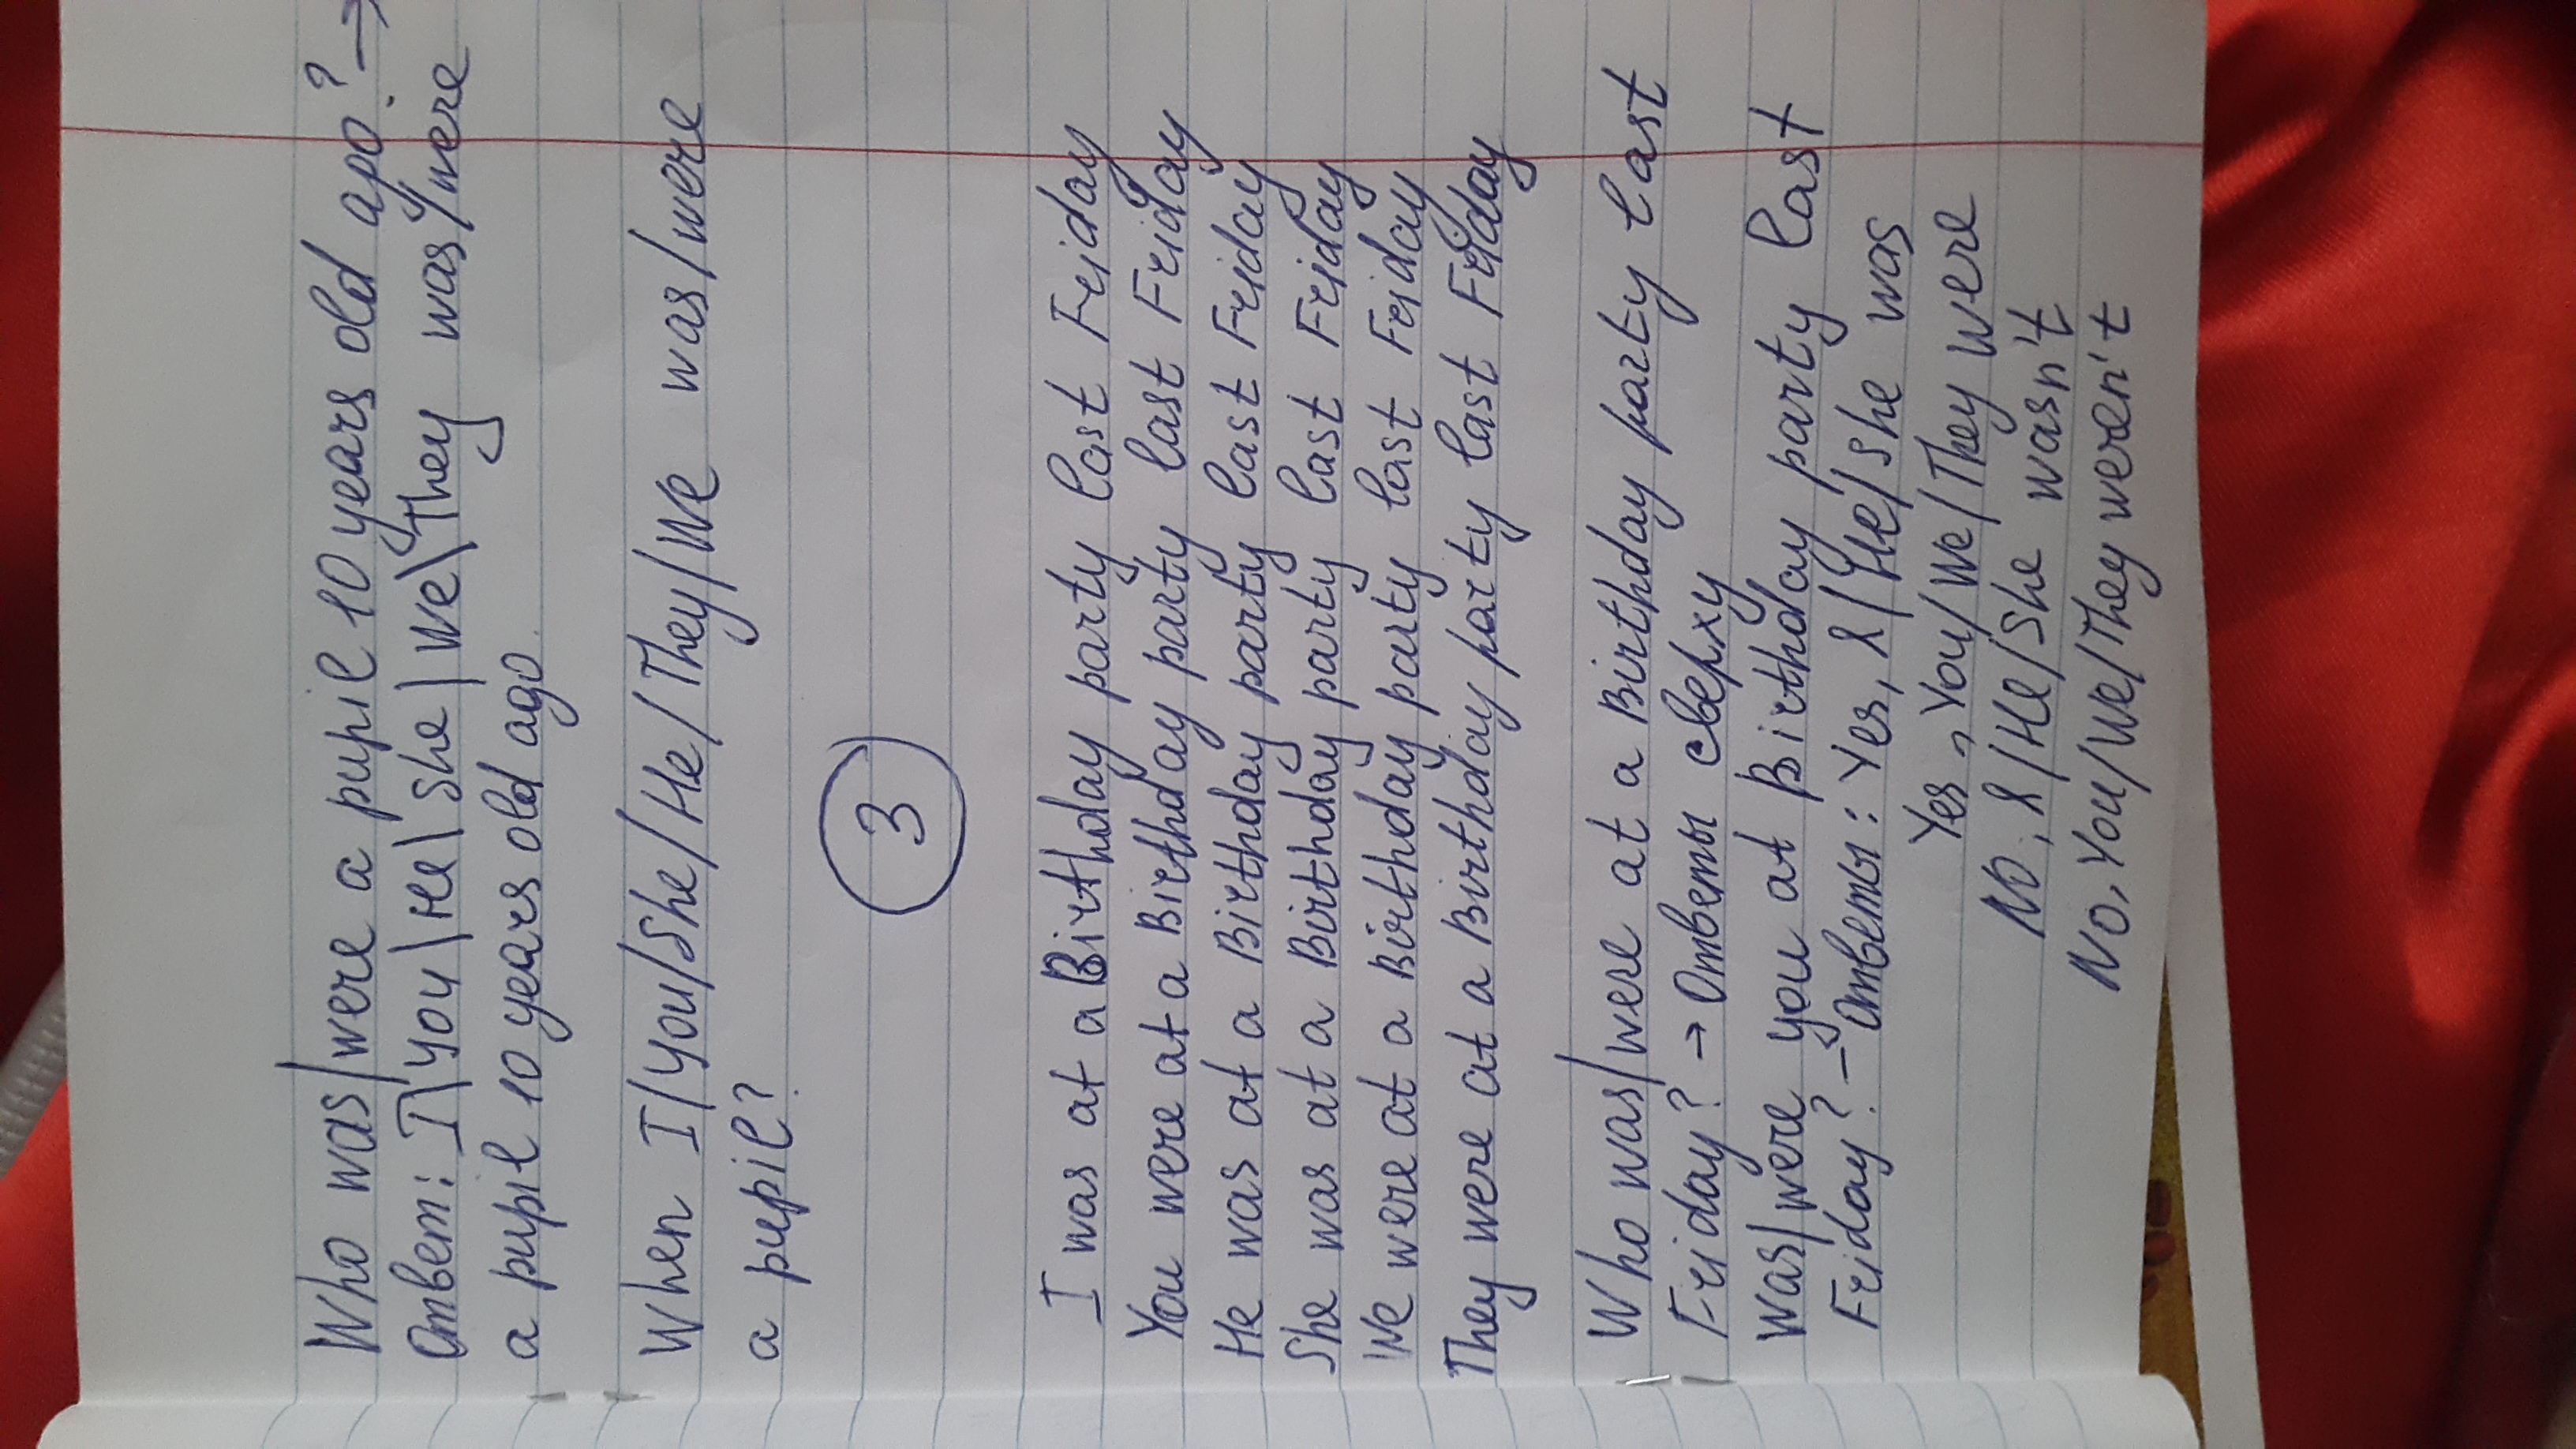 Who was/were a pupil 10 years old apo? →
Ответ: I\you\He\she/we\They was/were
a pupil 10 years old ago.
When I/you/She/He/They/We was/were
a pupil?
3
I was at a Birthday party last Friday
You were at a Birthday party last Friday
He was at a Birthday party last Friday
She was at a Birthday party last Friday
We were at a Birthday party last Friday
They were at a Birthday party last Friday
Who was/were at a Birthday party last
Friday? → Ответы сверху
Was/were you at Birthday party last
Friday? – Ответы: Yes, I/He/she was
Yes, You/We/They were
No, I/He/She wasn't
No, You/We/They weren't